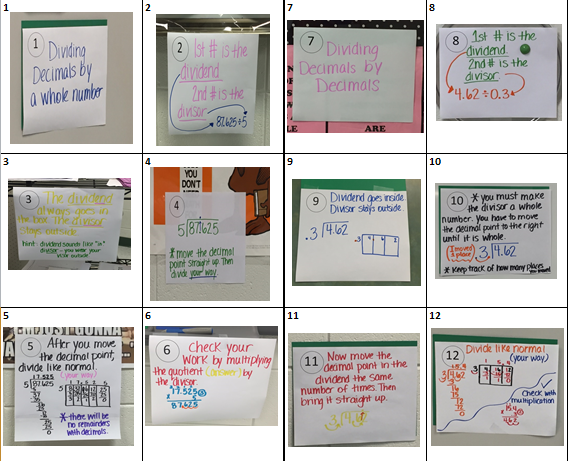 1
1
Dividing
Decimals by
a whole number
2
2
1st # is the
dividend
2nd # is the
divisor
87.625÷5
3
3
The dividend
always goes in
the box. The divisor
stays outside.
hint: dividend sounds like "in"
4
YOU
DON'T
NEED
5 87.625
*move the decimal
point straight up. Then
divide your way.
5
5
After you move
the decimal point,
divide like normal.
(your way)
17.525
5 87.625
* there will be
no remainders
with decimals.
6
6
Check your
work by multiplying
the quotient (answer) by
the divisor.
17.525
x 5
87.625
7
7
Dividing
Decimals by
Decimals
LE
ARE
8
8
1st # is the
dividend.
2nd # is the
divisor
4.62÷0.3
9
9
Dividend goes inside
Divisor stays outside.
.3 4.62
10
10
* you must make
the divisor a whole
number. You have to move
the decimal point to the right
until it is whole.
(I moved
1 place)
.3. 4.62
* Keep track of how many places
you moved
11
11
Now move the
decimal point in the
dividend the same
number of times. Then
bring it straight up.
3. 4.6.2
12
12
Divide like normal
(your way)
15.4
Check with
multiplication
15.4